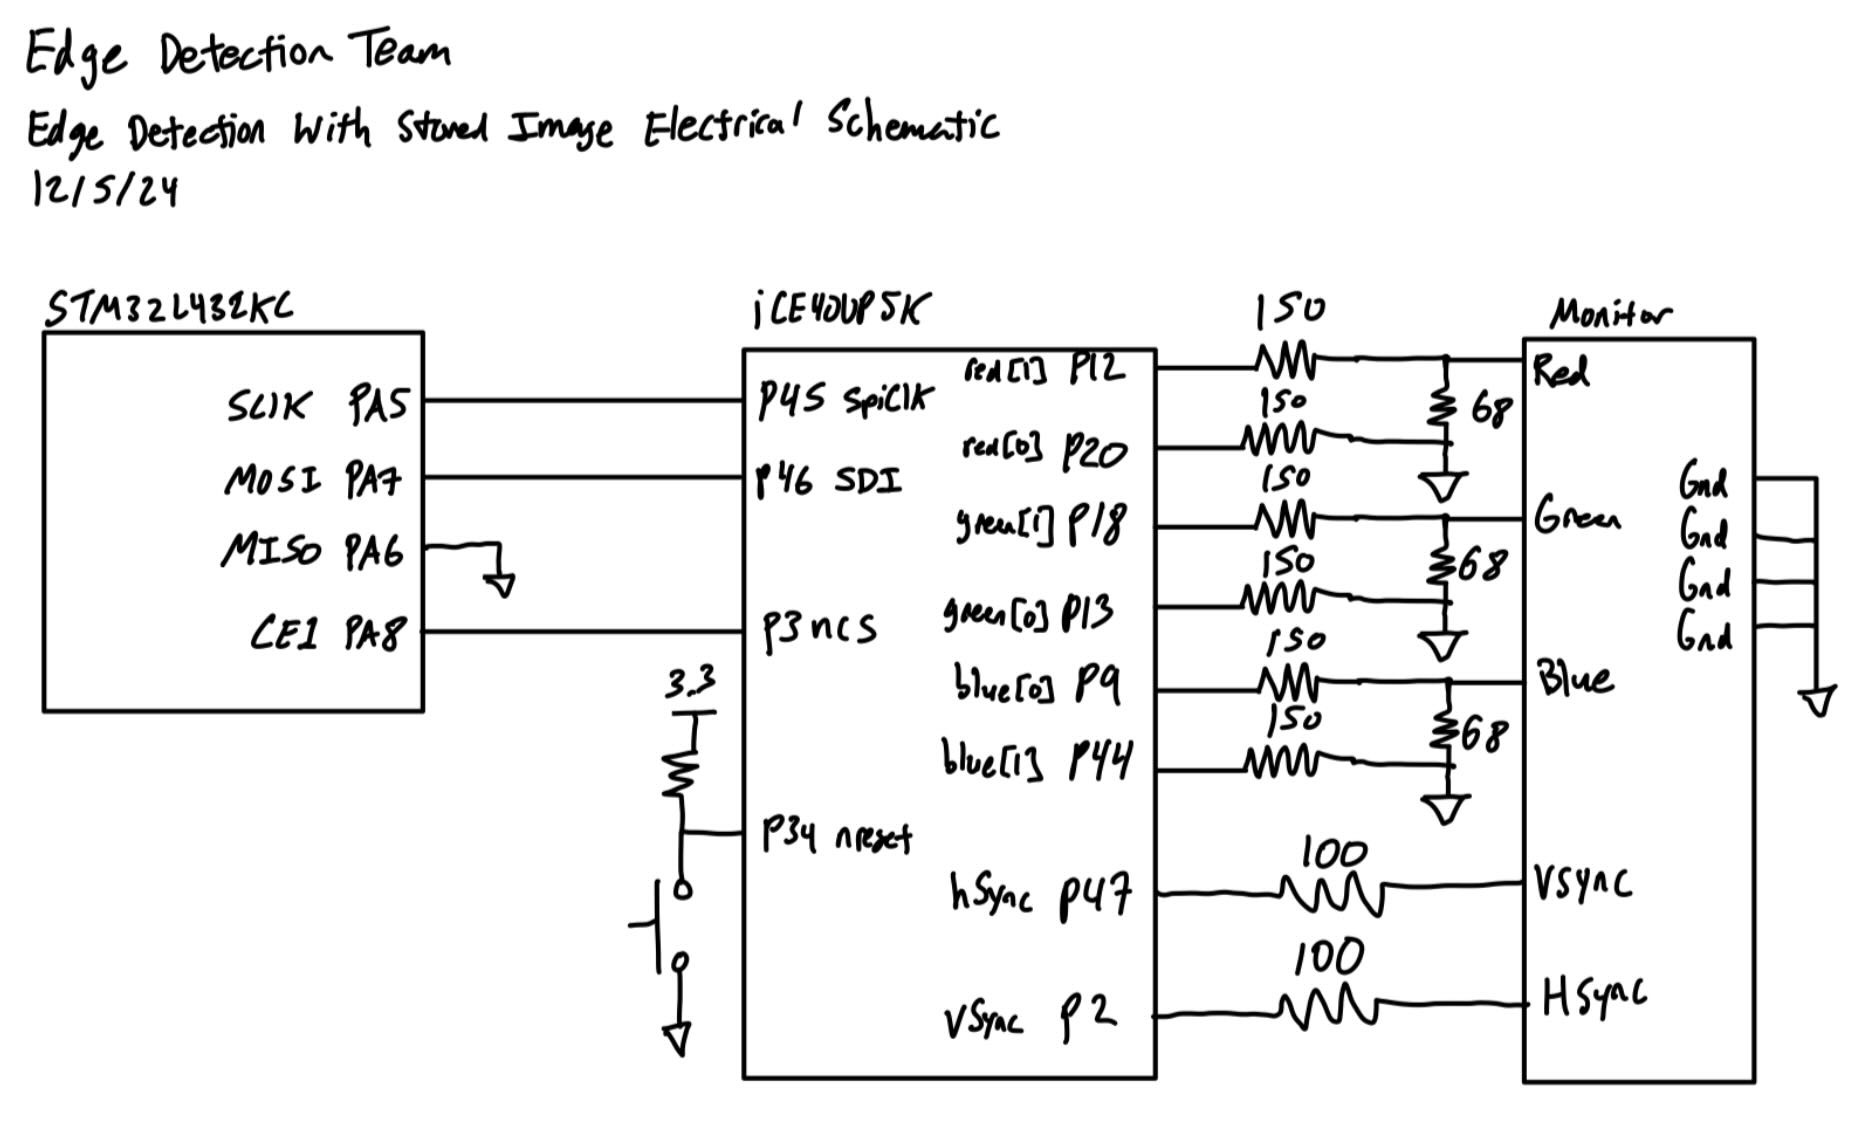 Edge Detection Team
Edge Detection With Stored Image Electrical Schematic
12/5/24
STM32L432KC
SClK PA5
MOSI PA7
MISO PA6
CE1 PA8
3.3
iCE40UP5K
P45 SpiClK
P46 SDI
P3 ncs
P34 nreset
red[1] P12
red[0] P20
green[1] P18
green[0] P13
blue[0] P9
blue[1] P44
hSync P47
vSync P2
150
150
68
150
150
68
150
150
68
100
100
Monitor
Red
Green
Blue
VSync
HSync
Gnd
Gnd
Gnd
Gnd